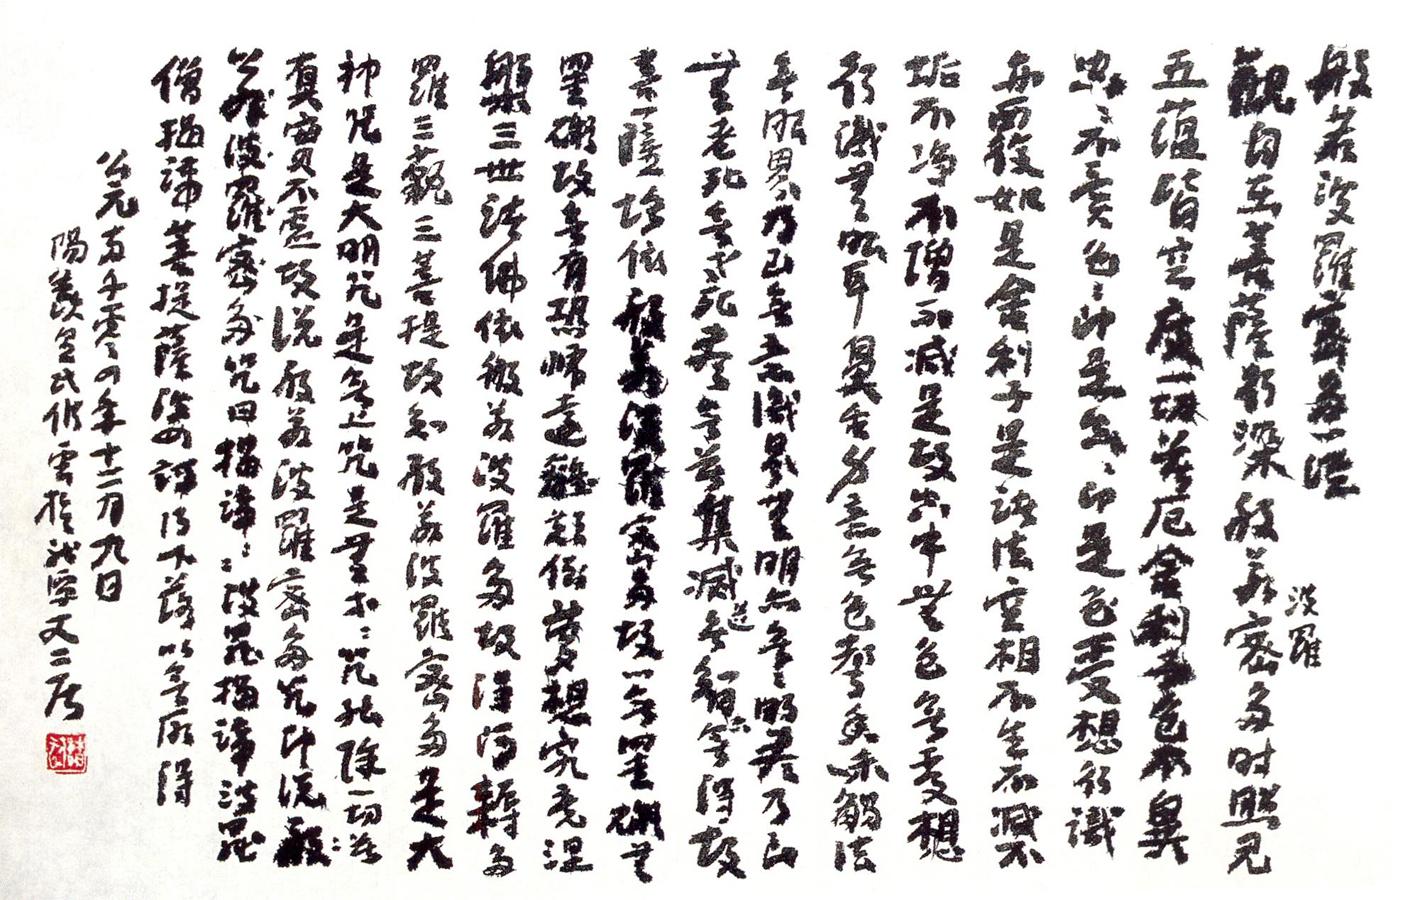 般若波羅蜜多心經
觀自在菩薩行深般若密多时照見
波羅
五蘊皆空度一切苦厄舍利子色不異
空〻不異色〻即是空〻即是色受想行識
亦復如是舍利子是諸法空相不生不滅不
垢不淨不增不減是故空中無色無受想
行識無眼耳鼻舌身意無色聲香味觸法
無眼界乃至無意識界無無明亦無〻明尽乃至
無老死亦無老死盡無苦集滅道無智亦無得故
菩薩埵依般若波羅密多故心無罣礙無
罣礙故無有恐怖遠離顛倒夢想究竟涅
槃三世諸佛依般若波羅多故得阿耨多
羅三藐三菩提故知般若波羅密多是大
神咒是大明咒是無上咒是無等〻咒能除一切苦
真實不虛故說般若波羅密多咒即說般
若波羅密多咒曰揭諦〻〻波羅揭諦波羅
僧揭諦菩提薩婆訶 下落以無所得
公元两千零四年十二月九日
陽羨